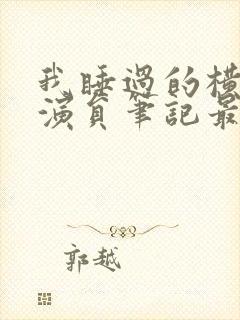 我睡過的橫
演員筆記最
郭越